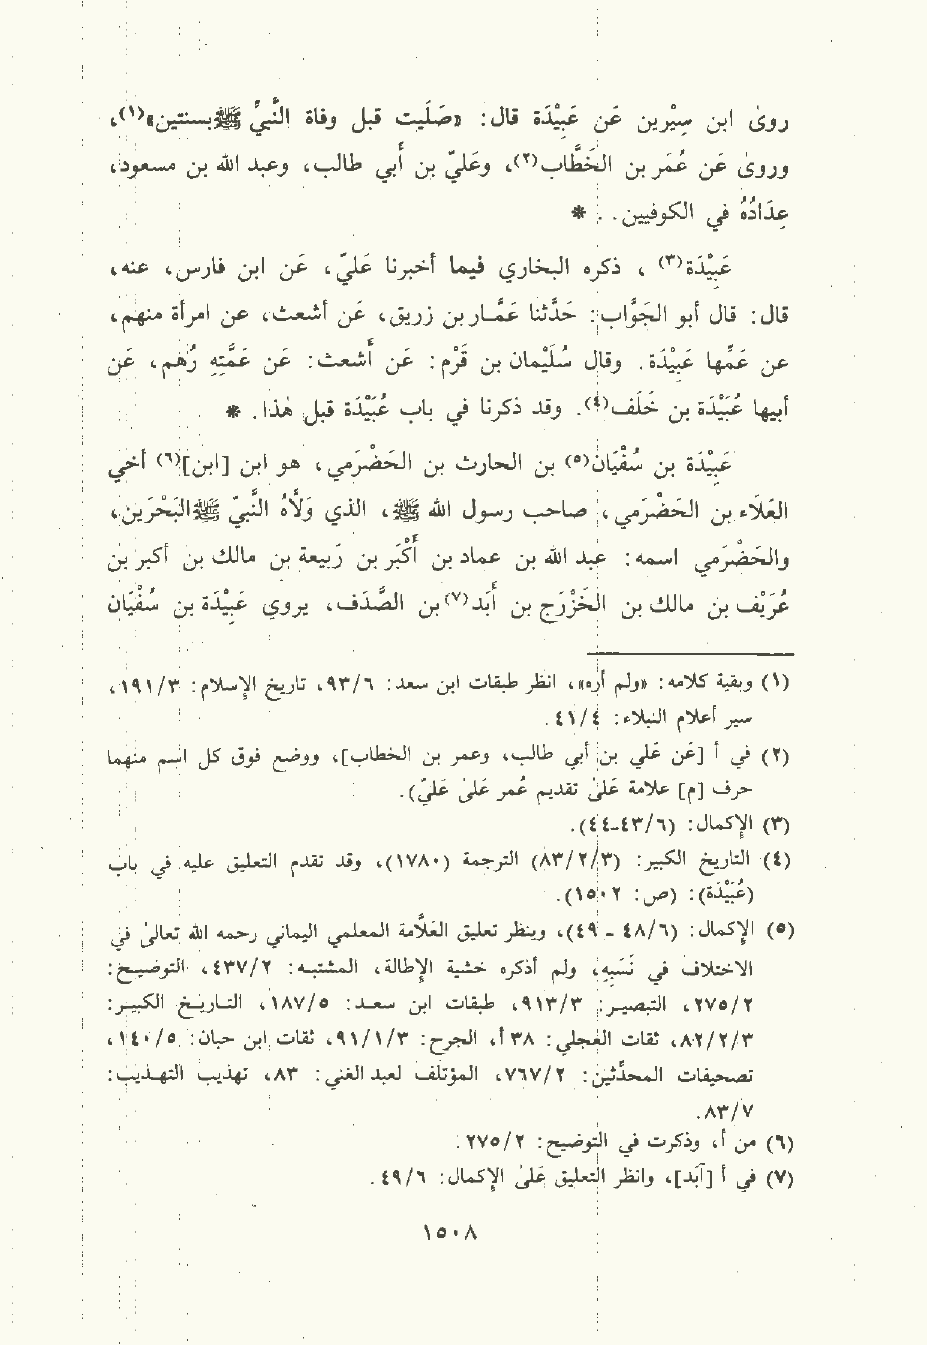 روىٰ ابن سِيْرين عَن عَبِيْدَة قال: «صَلَّيت قبل وفاة النَّبيِّ ﷺ بسنتين»(١)،
وروىٰ عَن عُمَر بن الخَطَّاب(٢)، وعَليّ بن أَبي طالب، وعبد الله بن مسعود،
عِدَادُهُ في الكوفيين. *
عَبِيْدَة(٣) ، ذكره البخاري فيما أخبرنا عَليّ، عَن ابن فارس، عنه،
قال: قال أبو الجَوَّاب: حَدَّثنا عَمَّـار بن زريق، عَن أشعث، عن امرأة منهم،
عن عَمِّها عَبِيْدَة. وقال سُلَيْمان بن قَرْم: عَن أَشعث: عَن عَمَّتِهِ رُهْم، عَن
أبيها عُبَيْدَة بن خَلَف(٤). وقد ذكرنا في باب عُبَيْدَة قبل هذا. *
عَبِيْدَة بن سُفْيَان(٥) بن الحارث بن الحَضْرَمي، هو ابن [ابن](٦) أخي
العَلَاء بن الحَضْرَمي، صاحب رسول الله ﷺ، الذي وَلَّاهُ النَّبيّ ﷺ البَحْرَين،
والحَضْرَمي اسمه: عبد الله بن عماد بن أَكْبَر بن رَبيعة بن مالك بن أكبر بن
عُرَيْف بن مالك بن الخَزرَج بن أَبَد(٧) بن الصَّدَف، يروي عَبِيْدَة بن سُفْيَان
(١) وبقية كلامه: «ولم أره»، انظر طبقات ابن سعد: ٩٣/٦، تاريخ الإسلام: ١٩١/٣،
سير أعلام النبلاء: ٤١/٤.
(٢) في أ [عَن عَلي بن أبي طالب، وعمر بن الخطاب]، ووضع فوق كل اسم منهما
حرف [م] علامة عَلىٰ تقديم عمر عَلىٰ عَليّ).
(٣) الإكمال: (٤٣/٦-٤٤).
(٤) التاريخ الكبير: (٨٣/٢/٣) الترجمة (١٧٨٠)، وقد تقدم التعليق عليه في باب
(عُبَيْدَة): (ص: ١٥٠٢).
(٥) الإكمال: (٤٨/٦ - ٤٩)، وينظر تعليق العَلَّامة المعلمي اليماني رحمه الله تعالىٰ في
الاختلاف في نَسَبِهِ، ولم أذكره خشية الإطالة، المشتبـه: ٤٣٧/٢، التوضيـح:
٢٧٥/٢، التبصيـر: ٩١٣/٣، طبقات ابن سـعـد: ١٨٧/٥، التـاريـخ الكبيـر:
٨٢/٢/٣، ثقات العجلي: ٣٨أ، الجرح: ٩١/١/٣، ثقات ابن حبان: ١٤٠/٥،
تصحيفات المحدِّثين: ٧٦٧/٢، المؤتلف لعبد الغني: ٨٣، تهذيب التهـذيـب:
٨٣/٧.
(٦) من أ، وذكرت في التوضيح: ٢٧٥/٢.
(٧) في أ [آبَد]، وانظر التعليق عَلىٰ الإكمال: ٤٩/٦.
١٥٠٨